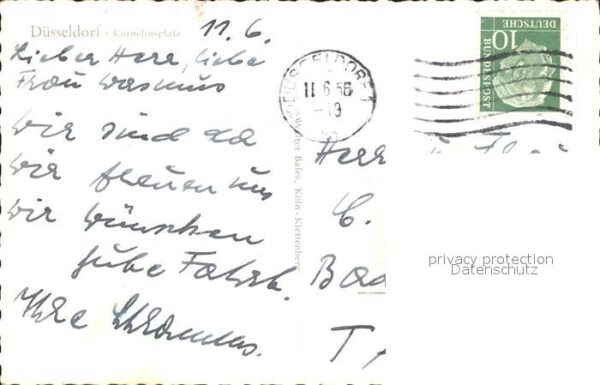 Düsseldorf / Corneliusplatz
11.6.
Lieber Herr, liebe
Frau Wasmus
wir sind da
wir freuen uns
wir wünschen
gute Fahrt.
Ihre
DÜSSELDORF
11.6.56
-19
10
DEUTSCHE
BUNDESPOST
Bales, Köln-Klettenberg
Herr
C.
Bad
T
privacy protection
Datenschutz